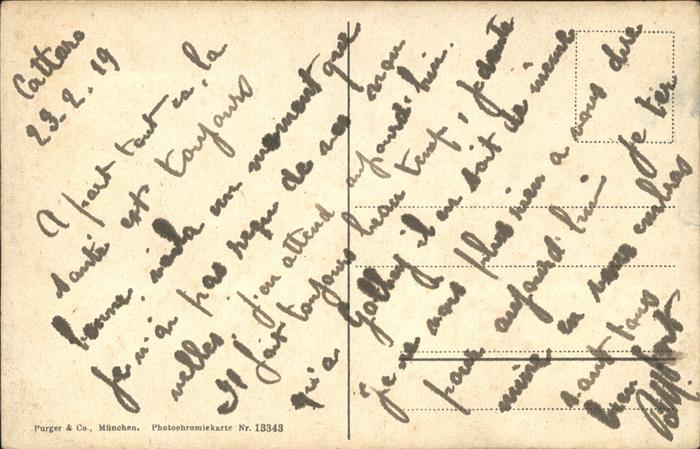 Cattaro
23-2-19
A part tout ça, la
santé est toujours
bonne, voila un moment que
je n'ai pas reçu de vos nou
velles, j'en attend aujourd'hui.
Il fait toujours beau temp, je doute
qu'a il en soit de même
Je ne vois plus rien a vous dire
pour aujourd'hui je ter
mine en vous
tous
bien fort
Purger & Co., München. Photochromiekarte Nr. 13343